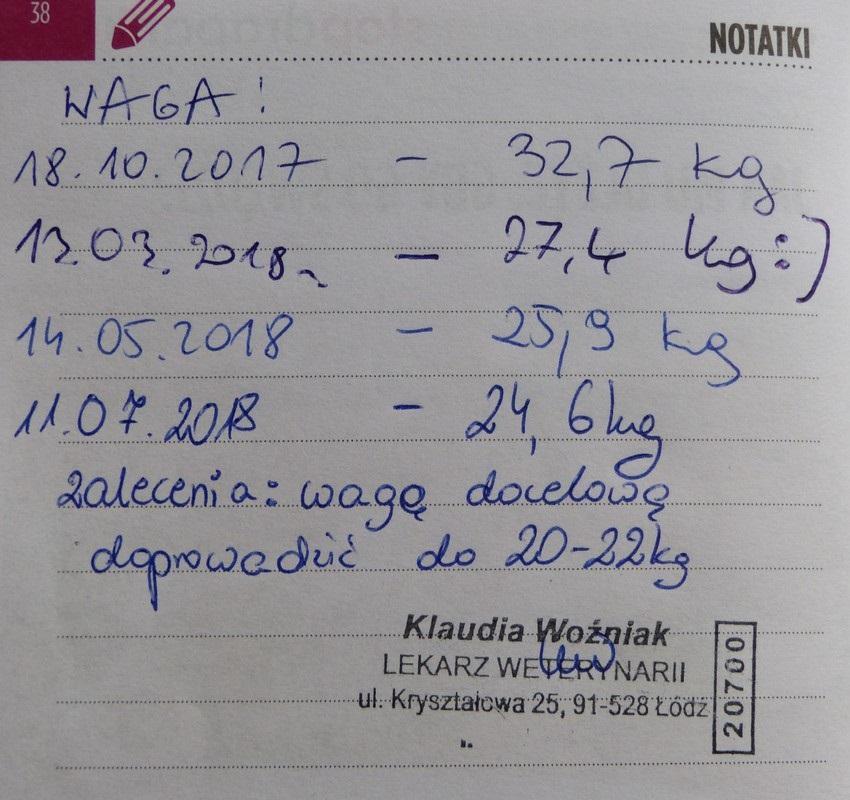 38
NOTATKI
WAGA!
18.10.2017 – 32,7 kg
13.03.2018r. – 27,4 kg :)
14.05.2018 – 25,9 kg
11.07.2018 – 24,6 kg
Zalecenia: wagę docelową
doprowadzić do 20-22kg
Klaudia Woźniak
LEKARZ WETERYNARII
ul. Kryształowa 25, 91-528 Łódź
20700